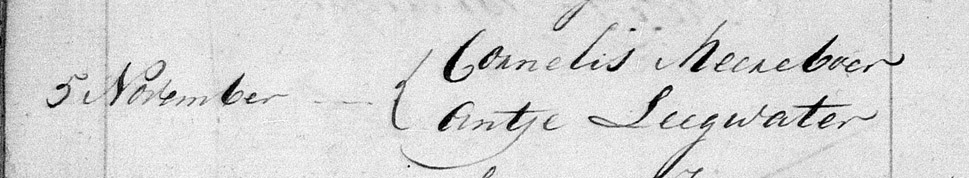 5 November
Cornelis Meereboer
Antje Leegwater